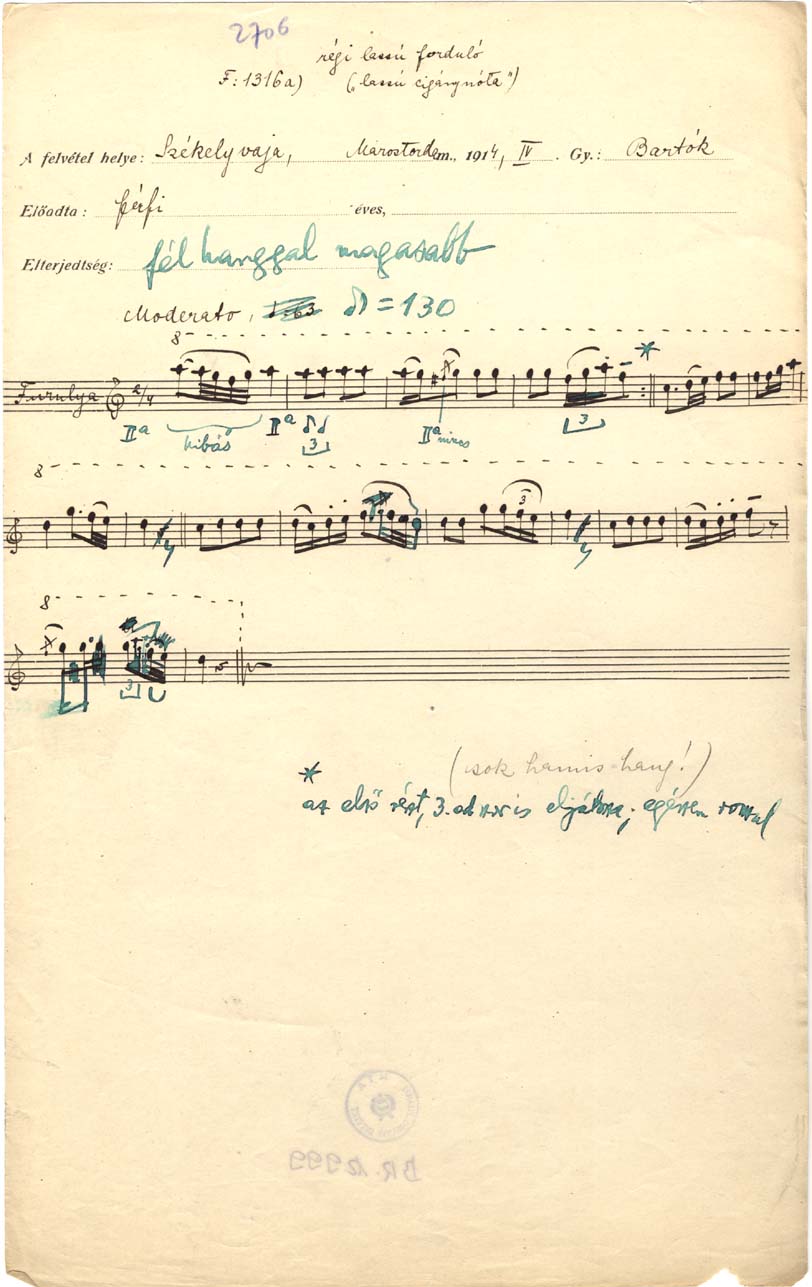 2706
régi lassú forduló
F: 1316a) („lassú cigánynóta")
A felvétel helye: Székelyvaja, Marostordam., 1914, IV. Gy.: Bartók
Előadta: férfi éves,
Elterjedtség: fél hanggal magasabb
Moderato, ♪ = 130
8
Furulya 2/4
*
IIª hibás IIª 3 IIª nincs 3
8
3
8
3
(sok hamis hang!)
*
az első részt, 3.odszor is eljátssza; egészen rosszul
BR. 12999